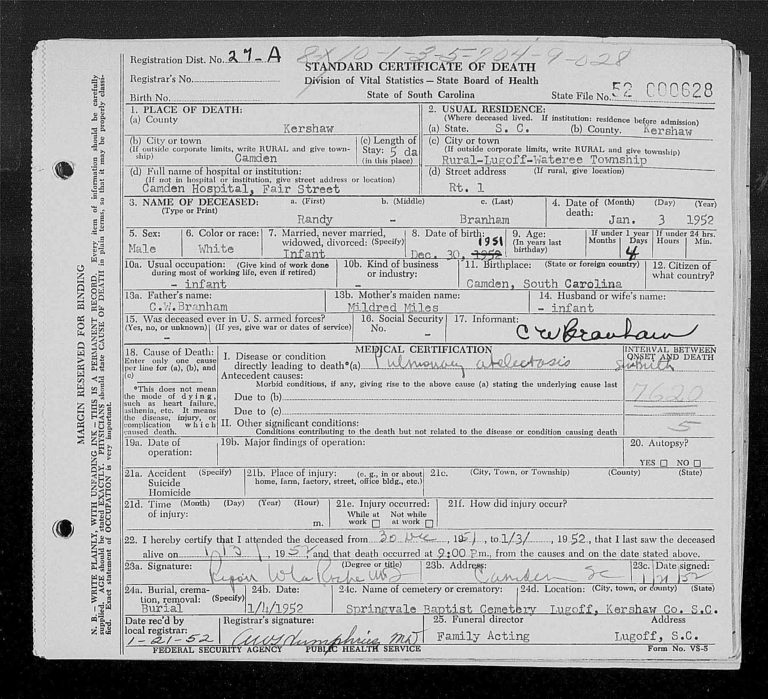 Registration Dist. No. 27-A
STANDARD CERTIFICATE OF DEATH
Registrar's No.
Division of Vital Statistics — State Board of Health
Birth No.
State of South Carolina
State File No. 52 000628
1. PLACE OF DEATH:
(a) County
Kershaw
2. USUAL RESIDENCE:
(Where deceased lived. If institution: residence before admission)
(a) State. S. C. (b) County. Kershaw
(b) City or town
(If outside corporate limits, write RURAL and give township)
Camden
(c) Length of Stay: 5 da
(in this place)
(c) City or town
(If outside corporate limits, write RURAL and give township)
Rural-Lugoff-Wateree Township
(d) Full name of hospital or institution:
(If not in hospital or institution, give street address or location)
Camden Hospital, Fair Street
(d) Street address (If rural, give location)
Rt. 1
3. NAME OF DECEASED:
(Type or Print)
a. (First) b. (Middle) c. (Last)
Randy - Branham
4. Date of death: (Month) (Day) (Year)
Jan. 3 1952
5. Sex:
Male
6. Color or race:
White
7. Married, never married, widowed, divorced: (Specify)
Infant
8. Date of birth:
1951
Dec. 30, 1952
9. Age:
(In years last birthday)
If under 1 year
Months Days
4
If under 24 hrs.
Hours Min.
10a. Usual occupation: (Give kind of work done during most of working life, even if retired)
- infant
10b. Kind of business or industry:
-
11. Birthplace: (State or foreign country)
Camden, South Carolina
12. Citizen of what country?
13a. Father's name:
C.W.Branham
13b. Mother's maiden name:
Mildred Miles
14. Husband or wife's name:
- infant
15. Was deceased ever in U. S. armed forces?
(Yes, no, or unknown) (If yes, give war or dates of service)
-
16. Social Security No.
-
17. Informant:
C W Branham
18. Cause of Death:
Enter only one cause per line for (a), (b), and (c)
*This does not mean the mode of dying, such as heart failure, asthenia, etc. It means the disease, injury, or complication which caused death.
MEDICAL CERTIFICATION
I. Disease or condition directly leading to death*(a) Pulmonary atelectasis
INTERVAL BETWEEN ONSET AND DEATH
Antecedent causes:
Morbid conditions, if any, giving rise to the above cause (a) stating the underlying cause last
Due to (b)
7620
Due to (c)
5
II. Other significant conditions:
Conditions contributing to the death but not related to the disease or condition causing death
19a. Date of operation:
19b. Major findings of operation:
20. Autopsy?
YES NO
21a. Accident (Specify)
Suicide
Homicide
21b. Place of injury: (e. g., in or about home, farm, factory, street, office bldg., etc.)
21c. (City, Town, or Township) (County) (State)
21d. Time (Month) (Day) (Year) (Hour)
of injury: m.
21e. Injury occurred:
While at work Not while at work
21f. How did injury occur?
22. I hereby certify that I attended the deceased from 30 Dec, 1951, to 1/3/, 1952, that I last saw the deceased
alive on 1/3/, 1952 and that death occurred at 9:00 P.m., from the causes and on the date stated above.
23a. Signature: (Degree or title)
23b. Address:
Camden SC
23c. Date signed:
24a. Burial, cremation, removal: (Specify)
Burial
24b. Date:
1/4/1952
24c. Name of cemetery or crematory:
Springvale Baptist Cemetery
24d. Location: (City, town, or county) (State)
Lugoff, Kershaw Co. S.C.
Date rec'd by local registrar:
1-21-52
Registrar's signature:
Humphries MD
25. Funeral director Address
Family Acting Lugoff, S.C.
FEDERAL SECURITY AGENCY PUBLIC HEALTH SERVICE Form No. VS-5
MARGIN RESERVED FOR BINDING
N. B. — WRITE PLAINLY, WITH UNFADING INK — THIS IS A PERMANENT RECORD. Every item of information should be carefully
supplied. AGE should be stated EXACTLY. PHYSICIANS should state CAUSE OF DEATH in plain terms, so that it may be properly classified. Exact statement of OCCUPATION is very important.